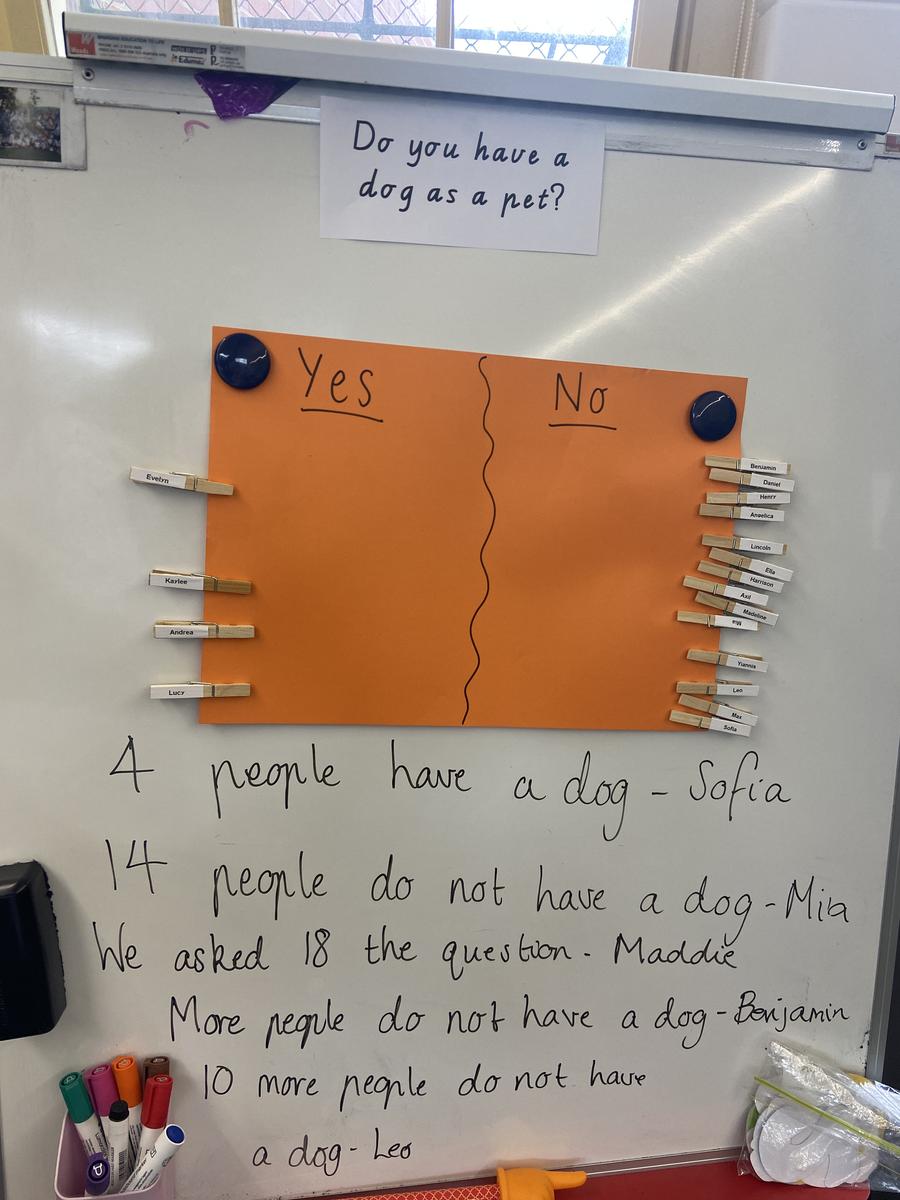 Do you have a
dog as a pet?
Yes
No
Evelyn
Kaylee
Andrea
Lucy
Benjamin
Daniel
Henry
Angelica
Lincoln
Ella
Harrison
Axil
Madeline
Mia
Yiannis
Leo
Max
Sofia
4 people have a dog - Sofia
14 people do not have a dog - Mia
We asked 18 the question - Maddie
More people do not have a dog - Benjamin
10 more people do not have
a dog - Leo